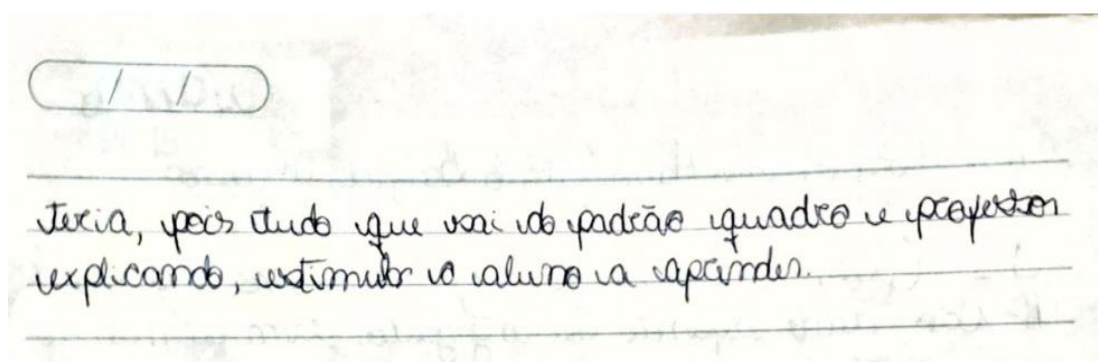 Teria, pois tudo que sai do padrão quadro e professor
explicando, estimula o aluno a aprender.